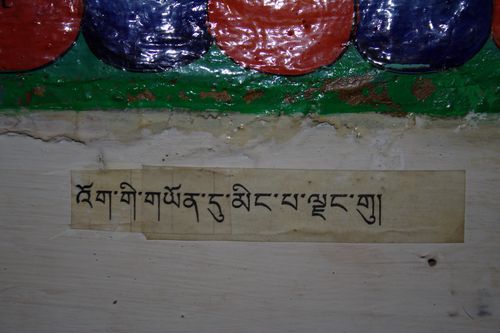 འོག་གི་གཡོན་དུ་མིང་པ་ལྗང་གུ།